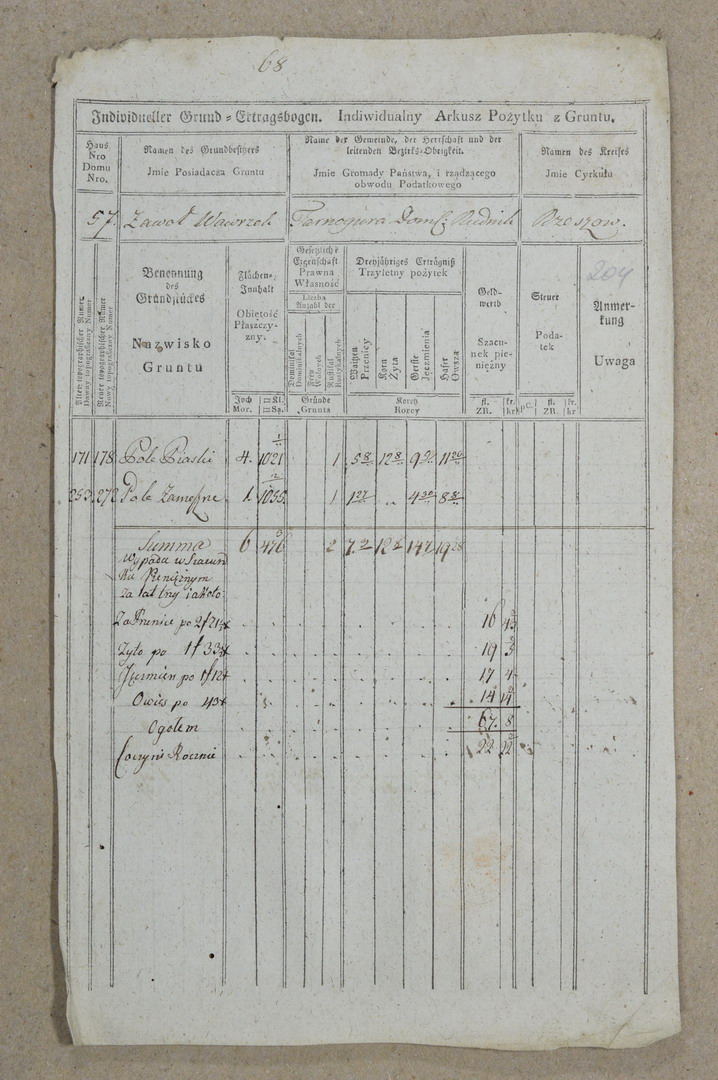 68
Individueller Grund=Ertragsbogen. Indiwidualny Arkusz Pożytku z Gruntu.
Haus Nro Domu Nro.
Namen des Grundbesitzers
Jmie Posiadacza Gruntu
Name der Gemeinde, der Herrschaft und der leitenden Bezirks-Obrigkeit.
Jmie Gromady Państwa, i rządzącego obwodu Podatkowego
Namen des Kreises
Jmie Cyrkułu
57. Zawoł Wawrzek Tarnogura Rudnik Rzeszow.
204
Alter topographischer Numer
Dawny topograficzny Numer
Neuer topographischer Numer
Nowy topograficzny Numer
Benennung des Grundstückes
Nazwisko Gruntu
Flächen-Innhalt
Obiętość Płaszczyzny.
Gesetzliche Eigenschaft
Prawna Własność
Liczba
Anzahl der
Dominikal
Dominikalnych
Frey
Wolnych
Rustikal
Rustykalnych
Dreyjähriges Erträgniß
Trzyletny pożytek
Waitzen
Pszenicy
Korn
Żyta
Gerste
Jęczmienia
Hafer
Owsza
Geldwerth
Szacunek pieniężny
Steuer
Podatek
Anmerkung
Uwaga
Joch Mor.
□Kl. □Są.
Gründe
Grunta
Koretz
Korcy
fl. ZR.
kr. kr
pc.
fl. ZR.
kr. kr
171 178 Pole Piaski 4. 1021 1 5 8 12 8 9 11 26
253 272 Pole 1. 1055 1 1 27 .. 4 30 8 8
Summa 6 476 2 7. 12 14 19
wypada w Szacunku Pieniężnym
za
Za Przenice po 2f 21 16
Zyto po 1f 33 19
Jęczmien po 1f 12 17 4
Owies po 43 14 14
Ogołem 67. 8
czyni Rocznie 22 22